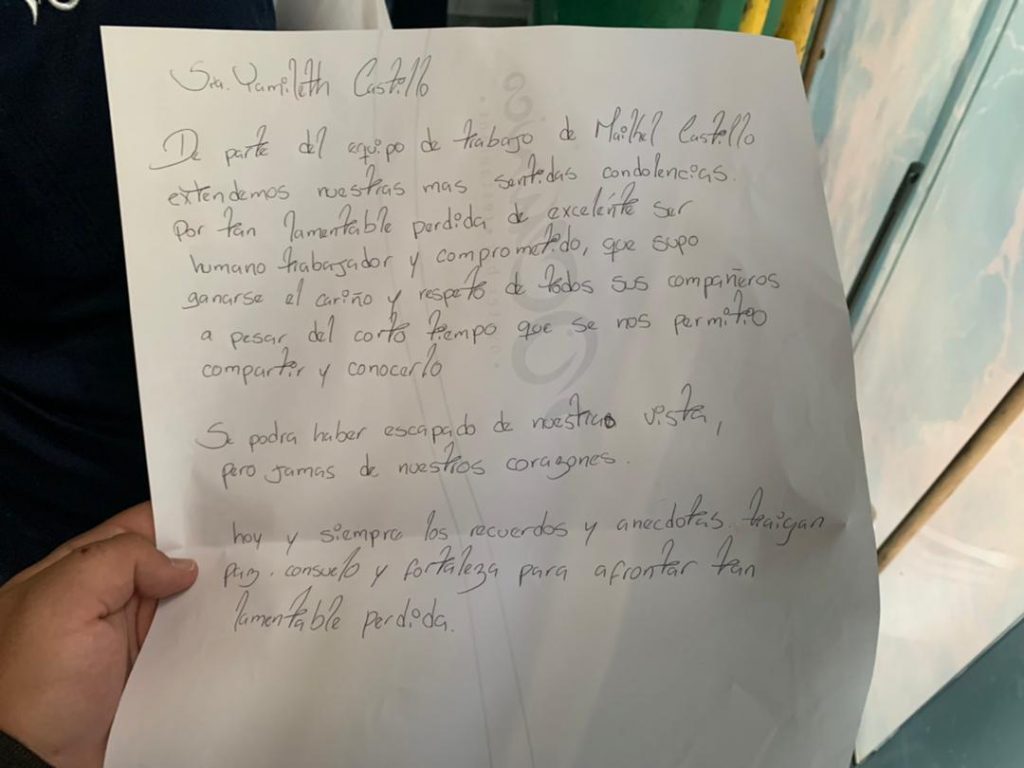 Sra. Yamileth Castillo
De parte del equipo de trabajo de Maikel Castillo
extendemos nuestras mas sentidas condolencias.
Por tan lamentable perdida de excelente ser
humano trabajador y comprometido, que supo
ganarse el cariño y respeto de todos sus compañeros
a pesar del corto tiempo que se nos permitio
compartir y conocerlo
Se podra haber escapado de nuestra vista,
pero jamas de nuestros corazones.
hoy y siempre los recuerdos y anecdotas traigan
paz. consuelo y fortaleza para afrontar tan
lamentable perdida.